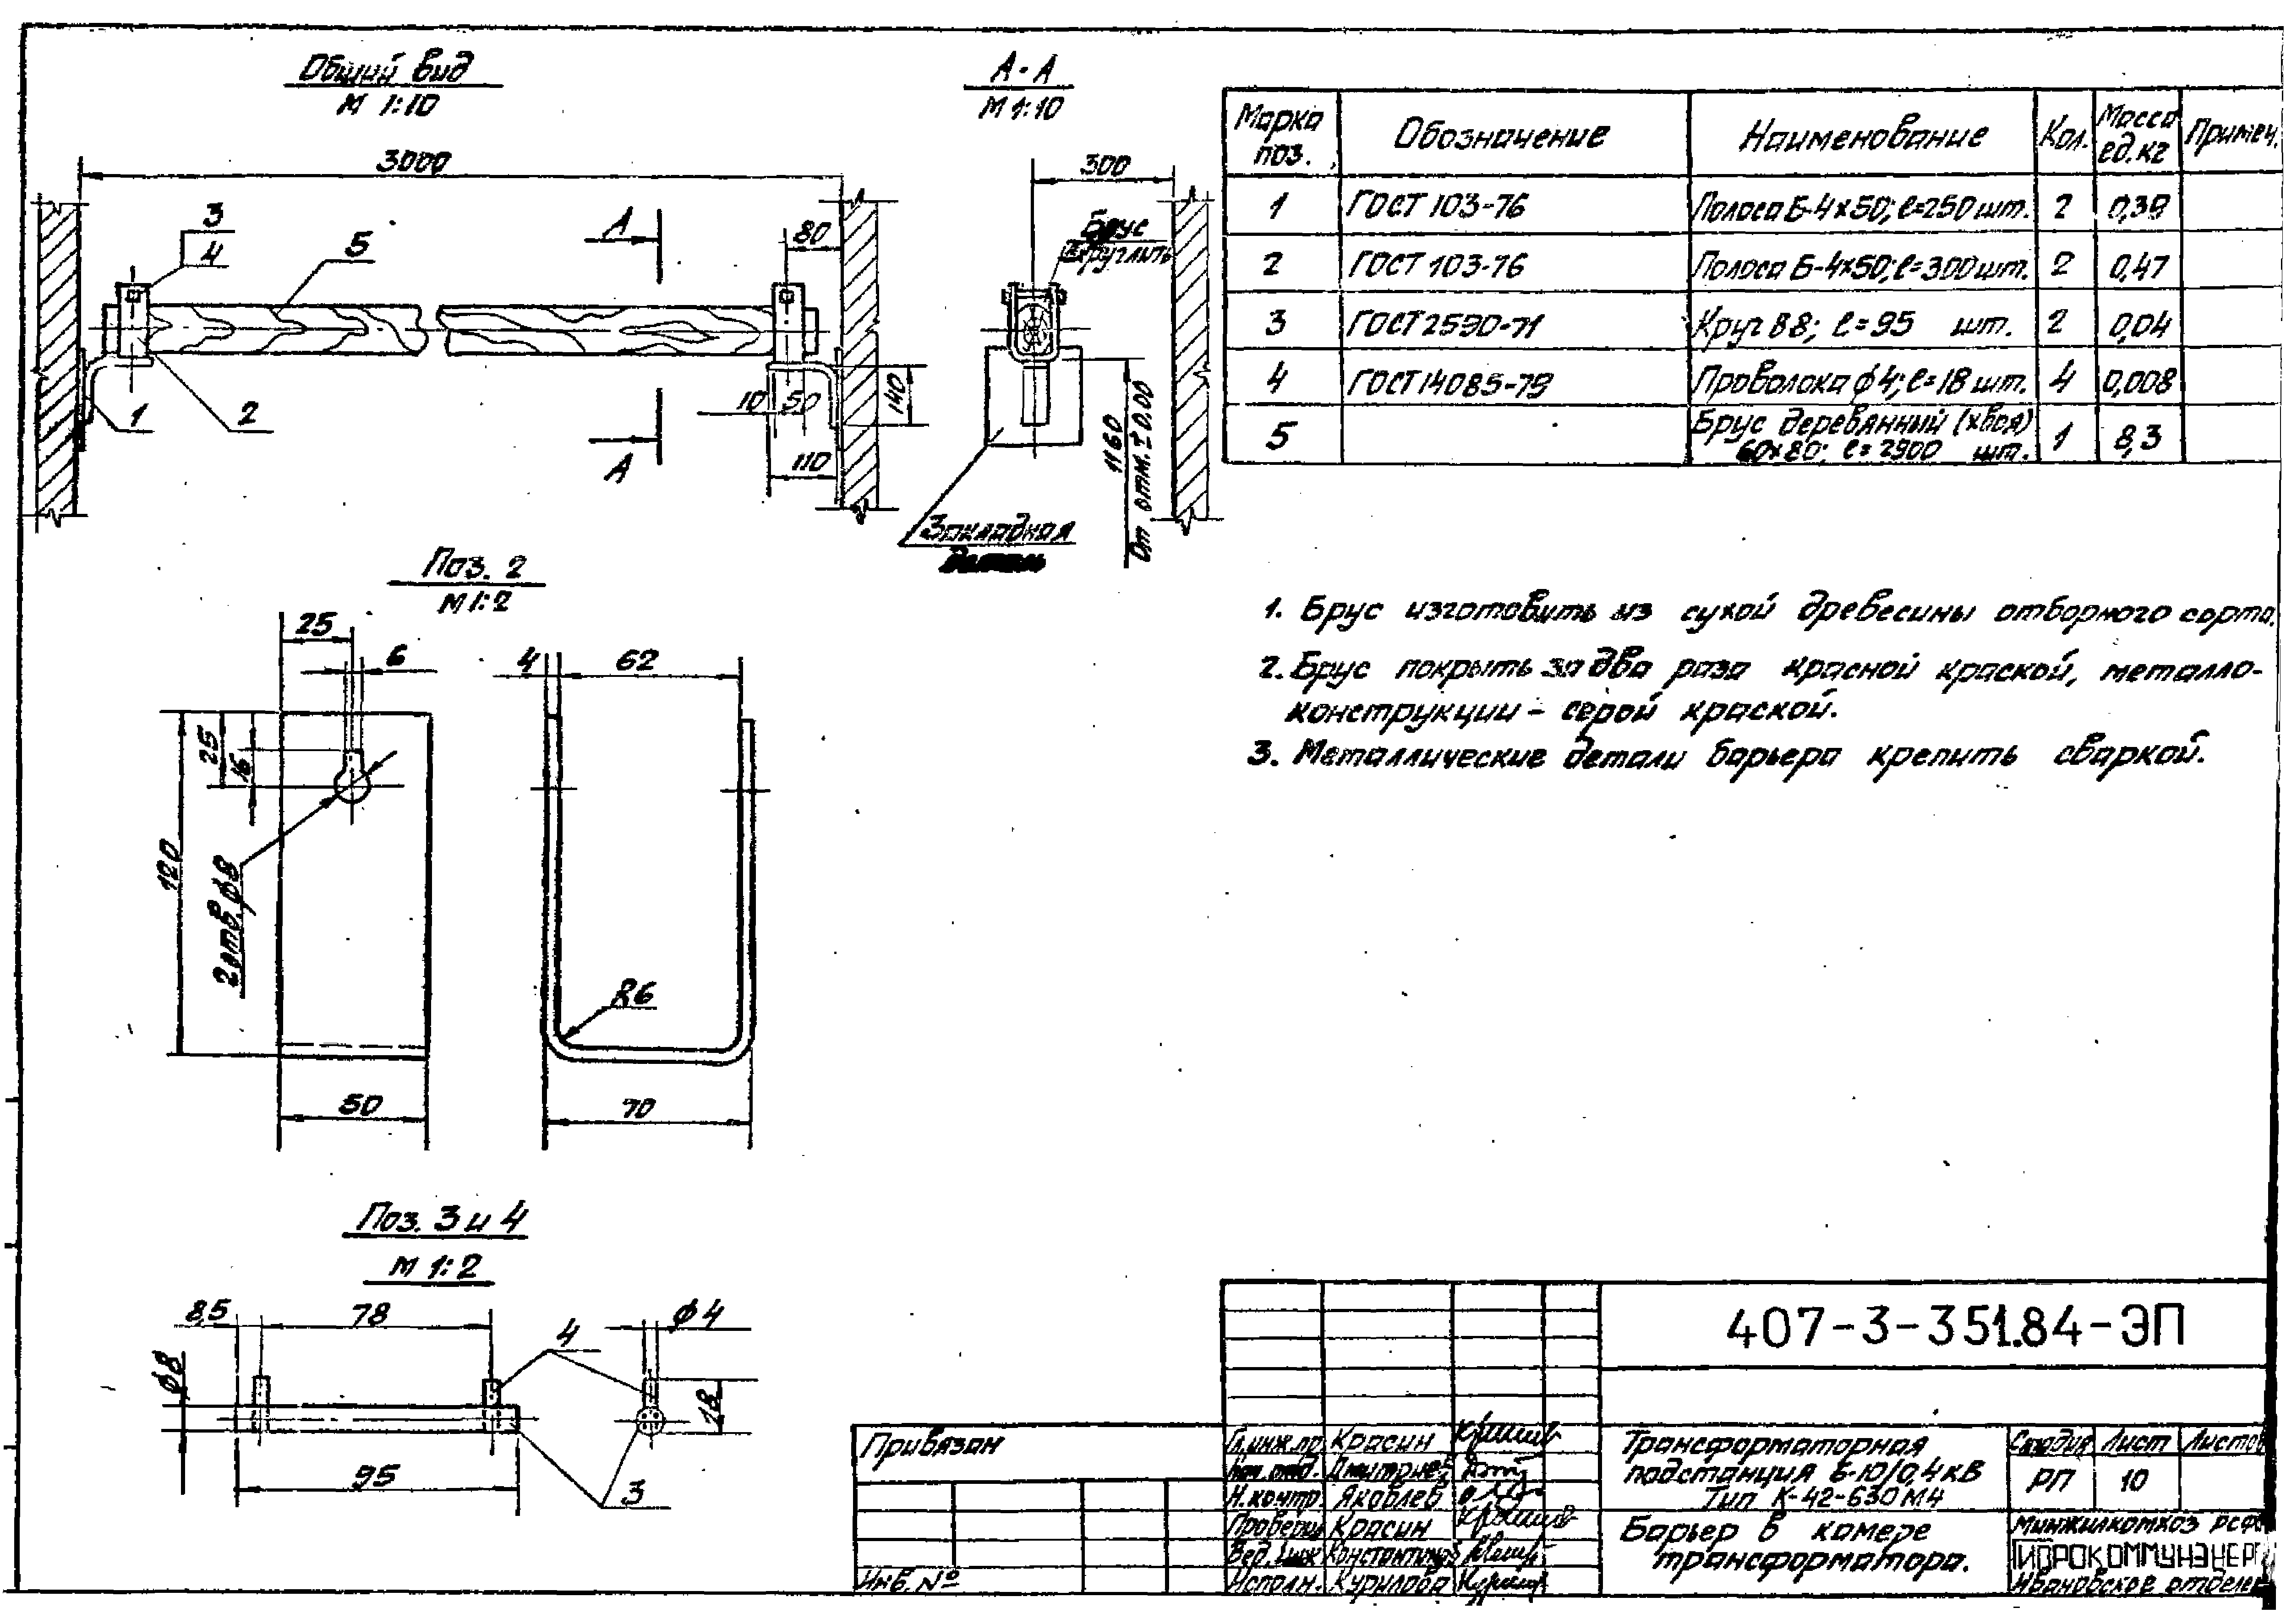 Общий вид
М 1:10
3000
3
4
5
А
80
1
2
А
10
50
140
110
А-А
М 1:10
300
Брус
Скруглить
1160
От отм. ±0.00
Закладная
деталь
Марка поз. Обозначение Наименование Кол. Масса ед. кг Примеч.
1 ГОСТ 103-76 Полоса Б-4х50; ℓ=250 шт. 2 0,39
2 ГОСТ 103-76 Полоса Б-4х50; ℓ=300 шт. 2 0,47
3 ГОСТ 2590-71 Круг В8; ℓ=95 шт. 2 0,04
4 ГОСТ 14085-79 Проволока ф4; ℓ=18 шт. 4 0,008
5 Брус деревянный (хвоя)
60х80; ℓ=2900 шт. 1 8,3
1. Брус изготовить из сухой древесины отборного сорта.
2. Брус покрыть за два раза красной краской, металло-
конструкции - серой краской.
3. Металлические детали барьера крепить сваркой.
Поз. 2
М 1:2
25
6
25
16
120
2 отв. ф8
50
4
62
R6
70
Поз. 3 и 4
М 1:2
8,5
78
4
ф4
ф8
18
95
3
407-3-351.84-ЭП
Привязан
Инв. №
Гл.инж.пр. Красин
Нач. отд. Дмитриев
Н.контр. Яковлев
Проверил Красин
Вед. инж Константинов
Исполн. Курилова
Трансформаторная
подстанция 6-10/0,4 кВ
Тип К-42-630 М4
Стадия Лист Листов
РП 10
Барьер в камере
трансформатора.
Минжилкомхоз РСФС
ГИПРОКОММУНЭНЕРГ
Ивановское отделен